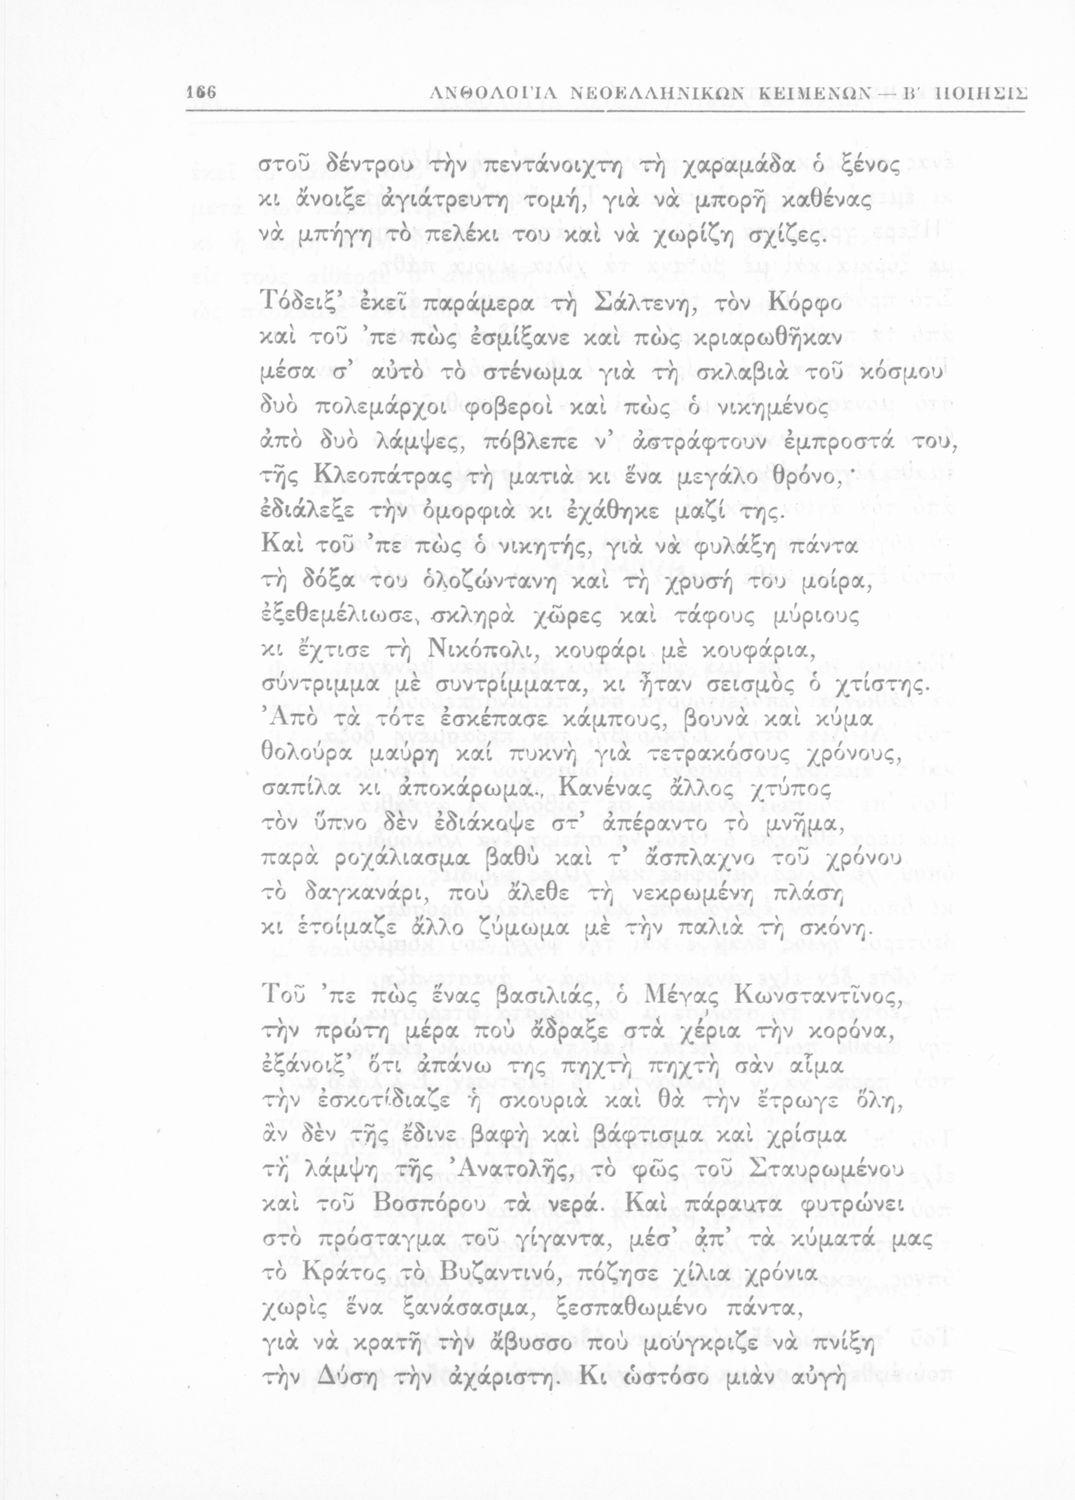 166 ΑΝΘΟΛΟΓΙΑ ΝΕΟΕΛΛΗΝΙΚΩΝ ΚΕΙΜΕΝΩΝ — Β΄ ΠΟΙΗΣΙΣ
στοῦ δέντρου τὴν πεντάνοιχτη τὴ χαραμάδα ὁ ξένος
κι ἄνοιξε ἀγιάτρευτη τομή, γιὰ νὰ μπορῇ καθένας
νὰ μπήγῃ τὸ πελέκι του καὶ νὰ χωρίζῃ σχίζες.
Τόδειξ’ ἐκεῖ παράμερα τὴ Σάλτενη, τὸν Κόρφο
καὶ τοῦ ’πε πὼς ἐσμίξανε καὶ πὼς κριαρωθῆκαν
μέσα σ’ αὐτὸ τὸ στένωμα γιὰ τὴ σκλαβιὰ τοῦ κόσμου
δυὸ πολεμάρχοι φοβεροὶ καὶ πὼς ὁ νικημένος
ἀπὸ δυὸ λάμψες, πόβλεπε ν’ ἀστράφτουν ἐμπροστά του,
τῆς Κλεοπάτρας τὴ ματιὰ κι ἕνα μεγάλο θρόνο,
ἐδιάλεξε τὴν ὀμορφιὰ κι ἐχάθηκε μαζί της.
Καὶ τοῦ ’πε πὼς ὁ νικητής, γιὰ νὰ φυλάξῃ πάντα
τὴ δόξα του ὁλοζώντανη καὶ τὴ χρυσή του μοίρα,
ἐξεθεμέλιωσε, σκληρὰ χῶρες καὶ τάφους μύριους
κι ἔχτισε τὴ Νικόπολι, κουφάρι μὲ κουφάρια,
σύντριμμα μὲ συντρίμματα, κι ἦταν σεισμὸς ὁ χτίστης.
Ἀπὸ τὰ τότε ἐσκέπασε κάμπους, βουνὰ καὶ κύμα
θολούρα μαύρη καί πυκνὴ γιὰ τετρακόσους χρόνους,
σαπίλα κι ἀποκάρωμα. Κανένας ἄλλος χτύπος
τὸν ὕπνο δὲν ἐδιάκοψε στ’ ἀπέραντο τὸ μνῆμα,
παρὰ ροχάλιασμα βαθὺ καὶ τ’ ἄσπλαχνο τοῦ χρόνου
τὸ δαγκανάρι, ποὺ ἄλεθε τὴ νεκρωμένη πλάση
κι ἑτοίμαζε ἄλλο ζύμωμα μὲ τὴν παλιὰ τὴ σκόνη.
Τοῦ ’πε πὼς ἕνας βασιλιάς, ὁ Μέγας Κωνσταντῖνος,
τὴν πρώτη μέρα ποὺ ἄδραξε στὰ χέρια τὴν κορόνα,
ἐξάνοιξ’ ὅτι ἀπάνω της πηχτὴ πηχτὴ σὰν αἷμα
τὴν ἐσκοτίδιαζε ἡ σκουριὰ καὶ θὰ τὴν ἔτρωγε ὅλη,
ἂν δὲν τῆς ἔδινε βαφὴ καὶ βάφτισμα καὶ χρίσμα
τὴ λάμψη τῆς Ἀνατολῆς, τὸ φῶς τοῦ Σταυρωμένου
καὶ τοῦ Βοσπόρου τὰ νερά. Καὶ πάραυτα φυτρώνει
στὸ πρόσταγμα τοῦ γίγαντα, μέσ’ ἀπ’ τὰ κύματά μας
τὸ Κράτος τὸ Βυζαντινό, πόζησε χίλια χρόνια
χωρὶς ἕνα ξανάσασμα, ξεσπαθωμένο πάντα,
γιὰ νὰ κρατῇ τὴν ἄβυσσο ποὺ μούγκριζε νὰ πνίξῃ
τὴν Δύση τὴν ἀχάριστη. Κι ὡστόσο μιὰν αὐγὴ